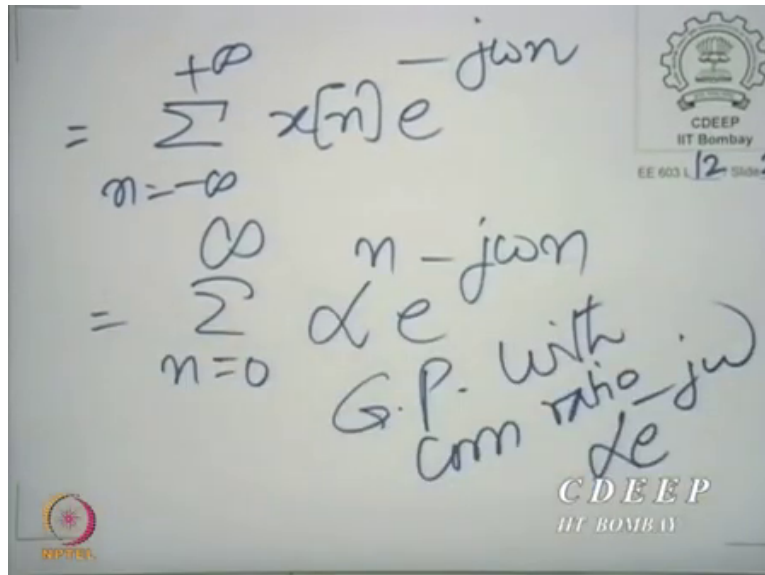 = +∞ Σ n=-∞ x[n] e^-jωn
CDEEP
IIT Bombay
EE 603 L 12 Slide
= ∞ Σ n=0 α^n e^-jωn
G.P. with
com ratio
αe^-jω
CDEEP
IIT BOMBAY
NPTEL